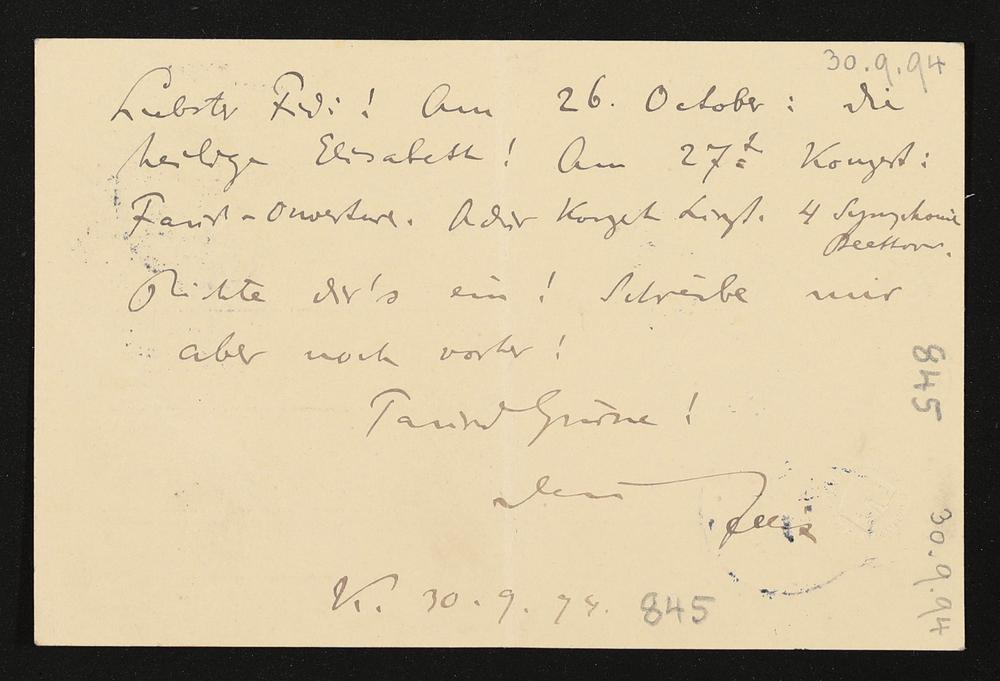 30.9.94
Liebster Fidi! Am 26. October: die
heilige Elisabeth! Am 27t Konzert:
Faust-Ouverture. A dur Konzert Liszt. 4 Symphonie
Beethoven.
Richte dir's ein! Schreibe mir
aber noch vorher!
Tausend Grüsse!
Dein Felix
K. 30.9.94. 845
845
30.9.94